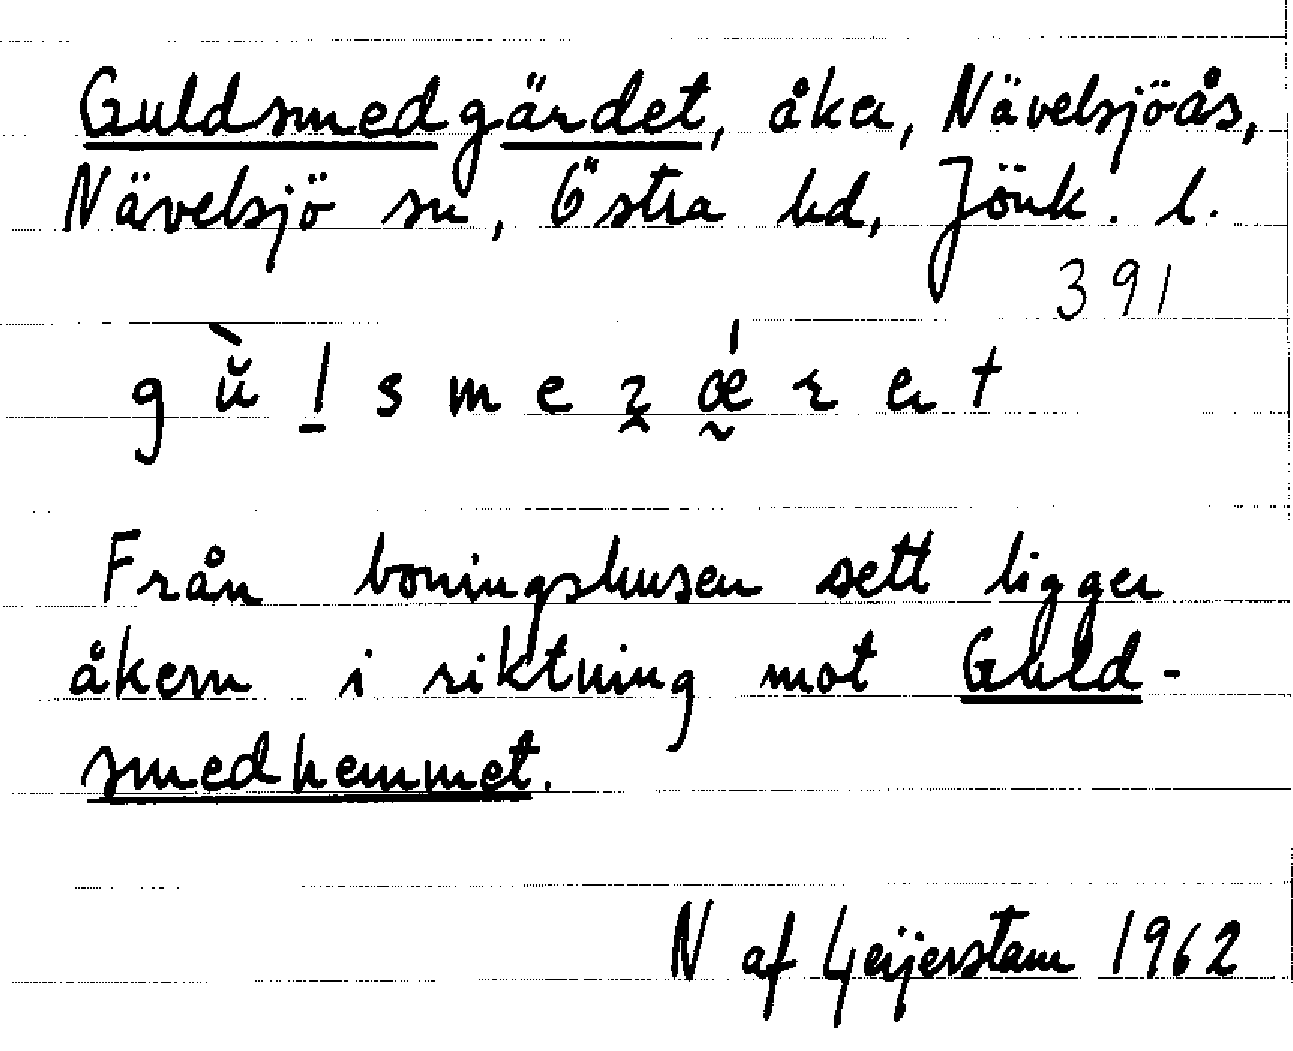 Guldsmedgärdet, åker, Nävelsjöås,
Nävelsjö sn, Östra hd, Jönk. l.
391
g ù̆ l̠ s m e
Från boningshusen sett ligger
åkern i riktning mot Guld-
smedhemmet.
N af Geijerstam 1962